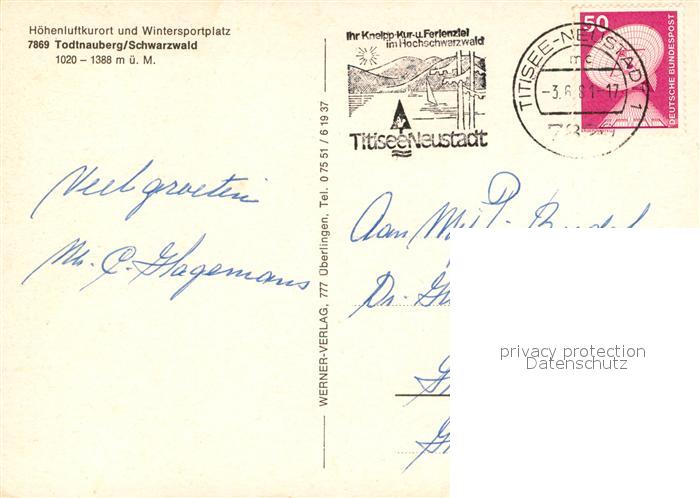 Höhenluftkurort und Wintersportplatz
7869 Todtnauberg/Schwarzwald
1020 – 1388 m ü. M.
Ihr Kneipp-Kur-u. Ferienziel
im Hochschwarzwald
TitiseeNeustadt
TITISEE-NEUSTADT 1
mc
-3.6.81-17
50
DEUTSCHE BUNDESPOST
WERNER-VERLAG, 777 Überlingen, Tel. 0 75 51 / 6 19 37
Veel groeten
C. Hagemans
Aan
Dr.
privacy protection
Datenschutz